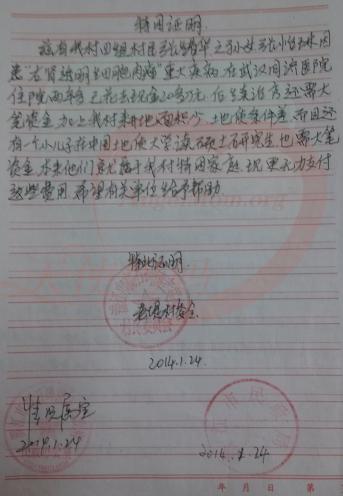 特困证明
兹有我村四组村民 之小女 因
患"右肾透明细胞肉瘤"重大疾病,在武汉同济医院
住院两年 已花去现金20多万元,但 治疗还需大
笔资金,加上我村耕地面积少,土地条件差,而且还
有一个小儿子在中国地质大学读硕士研究生,也需大笔
资金,本来他们就属于我村特困家庭,现更无力支付
这些费用,希望有关单位给予帮助
特此证明
村委会
2014.1.24
情况属实
2014.1.24
2014.1.24
年 月 日 第